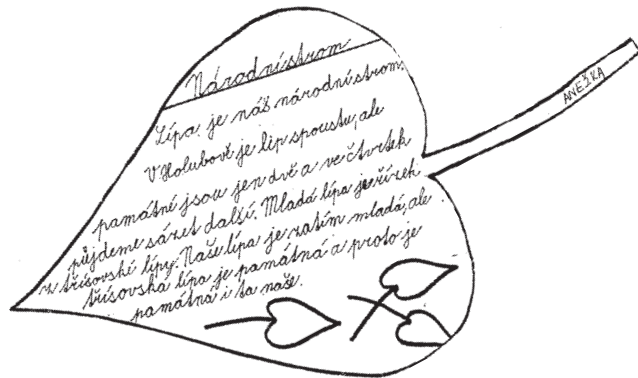 Národní strom
Lípa je náš národní strom.
V Holubově je lip spoustu, ale
památné jsou jen dvě a ve čtvrtek
půjdeme sázet další. Mladá lípa je řízek
z třísovské lípy. Naše lípa je zatím mladá, ale
třísovská lípa je památná a proto je
památná i ta naše.
ANEŽKA